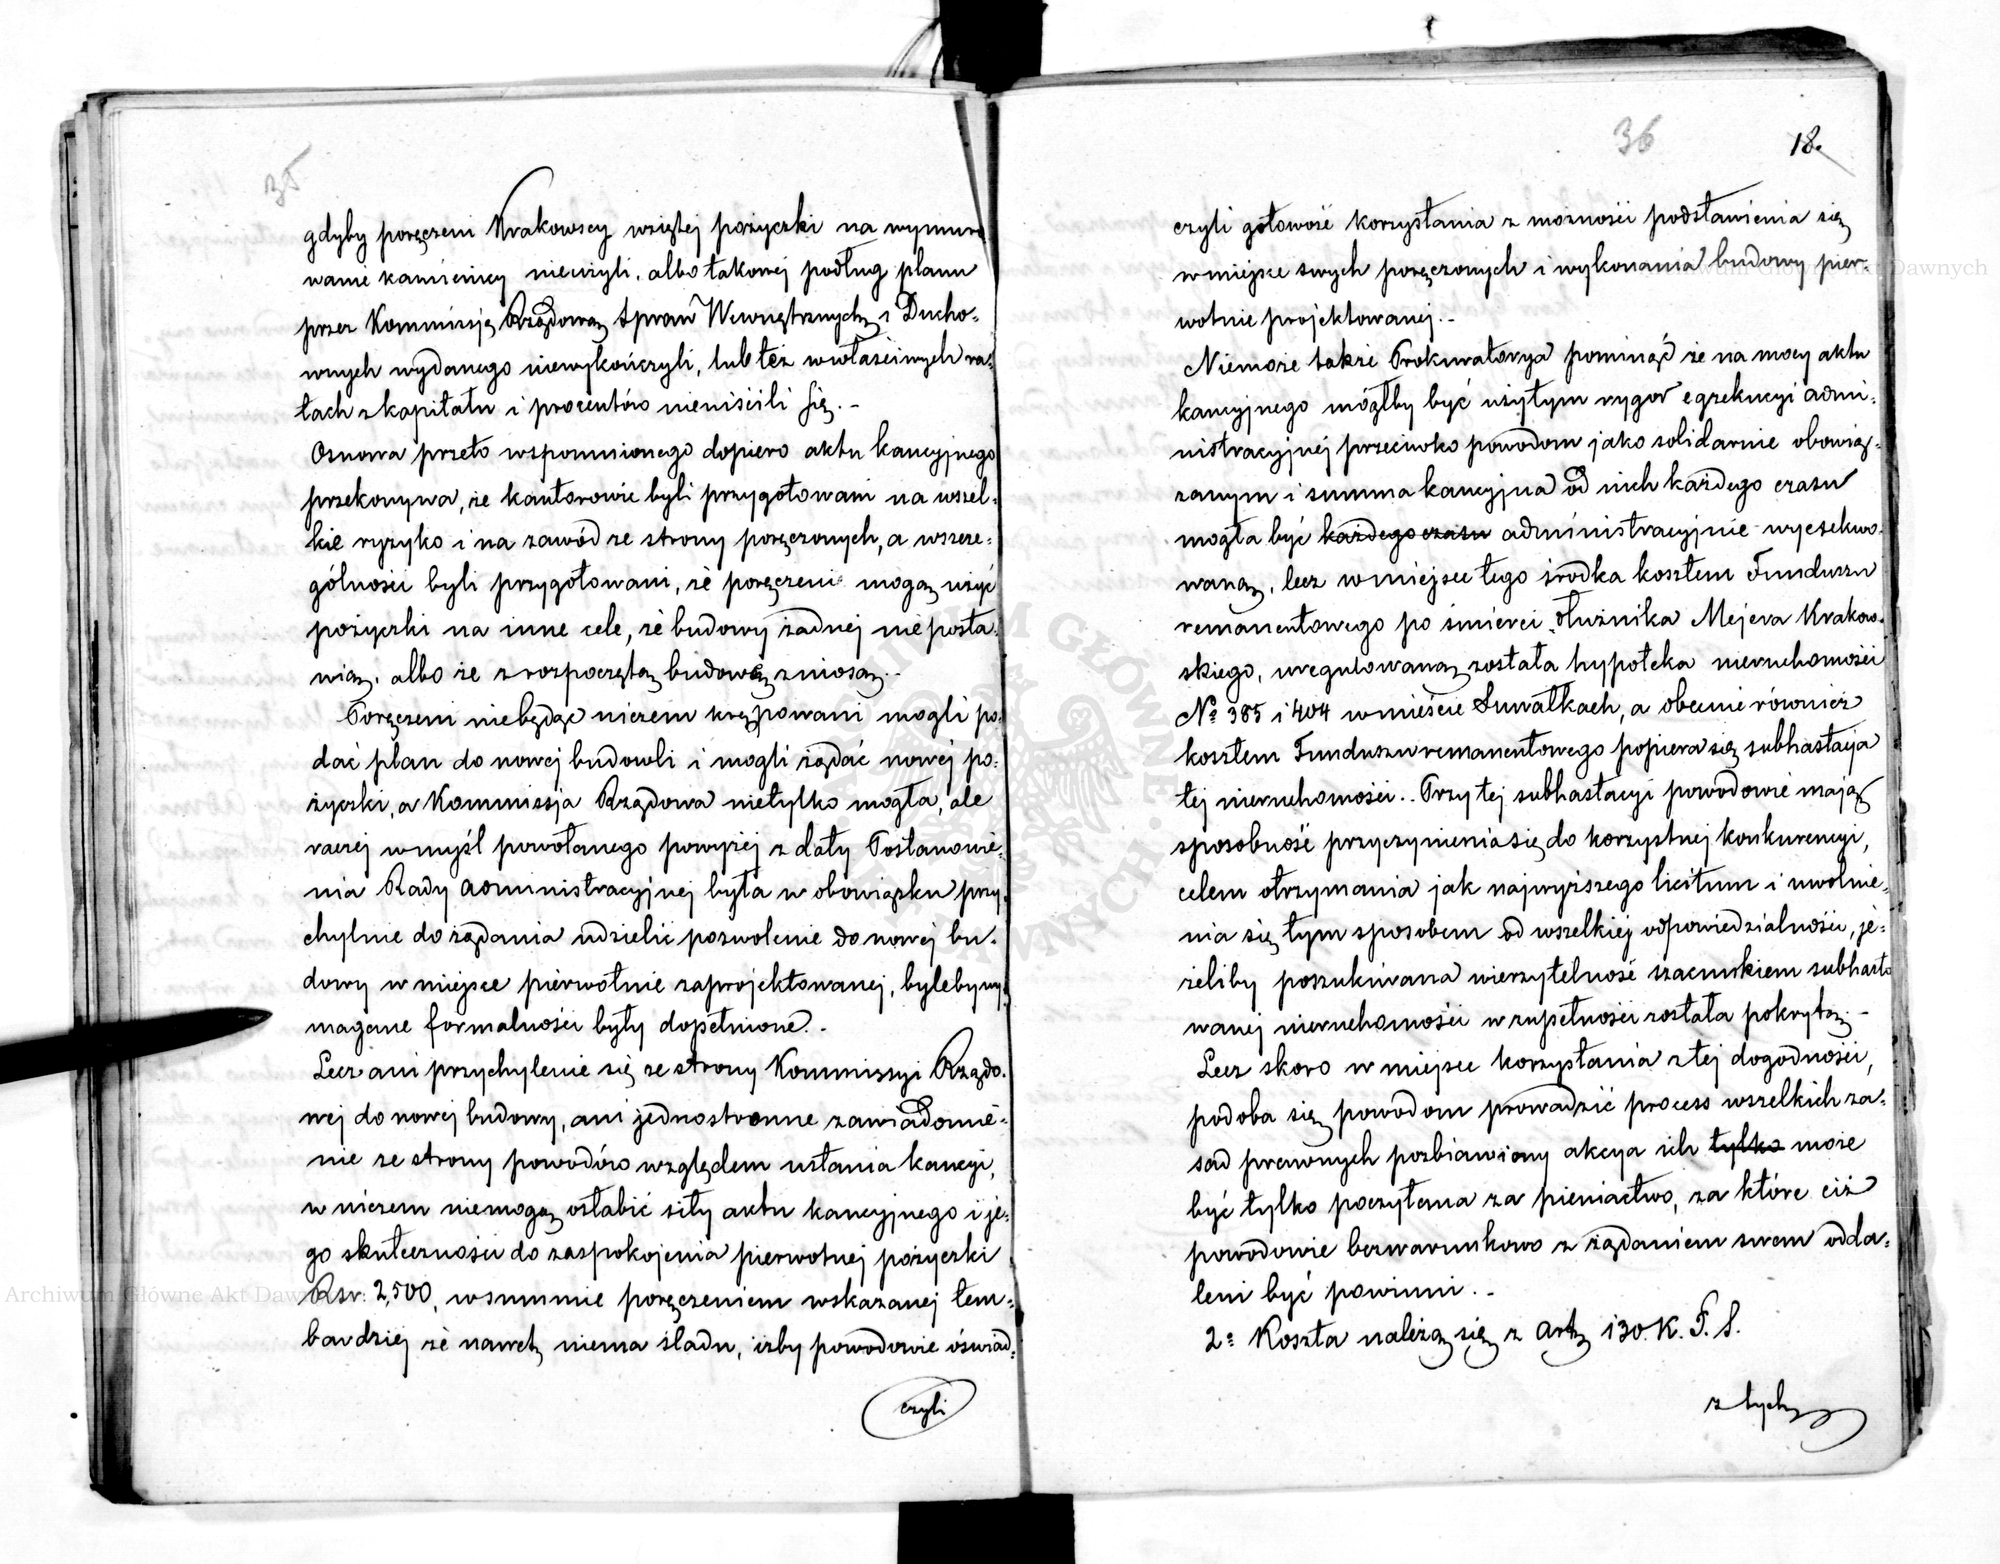 35
gdyby poręczeni Krakowscy wziętej pożyczki na wymuro
wanie kamienicy nieużyli, albo takowej podług planu
przez Kommissję Rządową Spraw Wewnętrznych i Ducho-
wnych wydanego niewykończyli, lub też wwłaściwych ra-
tach z kapitału i procentów nieuiścili się.-
Osnowa przeto wspomnionego dopiero aktu kaucyjnego
przekonywa, że kautorowie byli przygotowani na wszel-
kie ryzyko i na zawód ze strony poręczonych, a wszcze-
gólności byli przygotowani, że poręczeni mogą użyć
pożyczki na inne cele, że budowy żadnej nie posta-
wią, albo że z rozpoczętą budową zniosą.-
Poręczeni niebędąc niczem krępowani mogli po-
dać plan do nowej budowli i mogli żądać nowej po-
życzki, a Kommissja Rządowa nietylko mogła, ale
raczej wmyśl powołanego powyżej z daty Postanowie-
nia Rady Administracyjnej była w obowiązku przy-
chylnie do żądania udzielić pozwolenie do nowej bu-
dowy w miejsce pierwotnie zaprojektowanej, byleby wy-
magane formalności były dopełnione.-
Lecz ani przychylenie się ze strony Kommissyi Rządo-
wej do nowej budowy, ani jednostronne zawiadomie-
nie ze strony powodów względem ustania kaucyi,
w niczem niemogą osłabić siły aktu kaucyjnego i je-
go skuteczności do zaspokojenia pierwotnej pożyczki
Rsr. 2,500, wsummie poręczeniem wskazanej tem-
bardziej że nawet niema śladu, iżby powodowie oświad-
czyli
36
18.
czyli gotowość korzystania z możności podstawienia się
wmiejsce swych poręczonych i wykonania budowy pier-
wotnie projektowanej.-
Niemoże także Prokuratorya pominąć że na mocy aktu
kaucyjnego mógłby być użytym rygor egzekucyi admi-
nistracyjnej przeciwko powodom jako solidarnie obowią-
zanym i summa kaucyjna od nich każdego czasu
mogła być każdego czasu administracyjnie wyeksekwo-
waną, lecz wmiejsce tego środka kosztem Funduszu
remanentowego po śmierci dłużnika Mejera Krakow-
skiego, uregulowaną została hypoteka nieruchomości
No 385 i 404 wmieście Suwałkach, a obecnie również
kosztem Funduszu remanentowego popiera się subhastacja
tej nieruchomości.. Przy tej subhastacyi powodowie mają
sposobność przyczynienia się do korzystnej konkurencyi,
celem otrzymania jak najwyższego licitum i uwolnie-
nia się tym sposobem od wszelkiej odpowiedzialności, je-
żeliby poszukiwana wierzytelność szacunkiem subhasto
wanej nieruchomości w zupełności została pokrytą.-
Lecz skoro w miejsce korzystania z tej dogodności,
podoba się powodom prowadzić process wszelkich za-
sad prawnych pozbiawiony akcya ich tylko może
być tylko poczytana za pieniactwo, za które ciż
powodowie bezwarunkowo z żądaniem swem odda-
leni być powinni.-
2o Koszta należą się z Art. 130. K. P. S.
z tych
Archiwum Główne Akt Dawnych
Archiwum Główne Akt Dawnych
ARCHIWUM GŁÓWNE AKT DAWNYCH